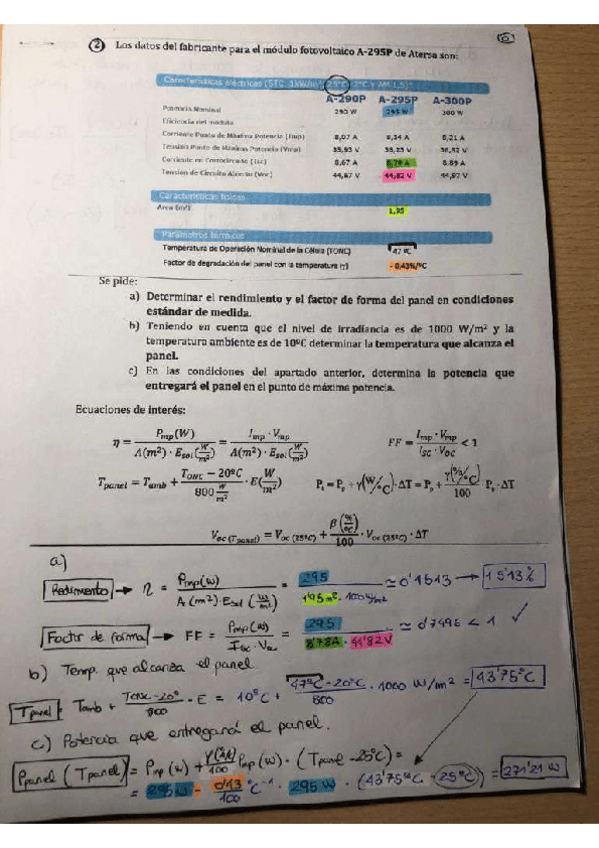 2) Los datos del fabricante para el módulo fotovoltaico A-295P de Atersa son:
Características eléctricas (STC: 1kW/m², 25ºC ±2ºC y AM 1,5)*
A-290P A-295P A-300P
Potencia Nominal 290 W 295 W 300 W
Eficiencia del módulo
Corriente Punto de Máxima Potencia (Imp) 8,07 A 8,14 A 8,21 A
Tensión Punto de Máxima Potencia (Vmp) 35,93 V 36,23 V 36,52 V
Corriente en Cortocircuito (Isc) 8,67 A 8,78 A 8,89 A
Tensión de Circuito Abierto (Voc) 44,67 V 44,82 V 44,97 V
Características físicas
Area (m²) 1,95
Parámetros térmicos
Temperatura de Operación Nominal de la Célula (TONC) 47 ºC
Factor de degradación del panel con la temperatura (γ) - 0,43%/ºC
Se pide:
a) Determinar el rendimiento y el factor de forma del panel en condiciones
estándar de medida.
b) Teniendo en cuenta que el nivel de irradiancia es de 1000 W/m² y la
temperatura ambiente es de 10ºC determinar la temperatura que alcanza el
panel.
c) En las condiciones del apartado anterior, determina la potencia que
entregará el panel en el punto de máxima potencia.
Ecuaciones de interés:
η = Pmp(W) / A(m²) · Esol(W/m²) = Imp · Vmp / A(m²) · Esol(W/m²) FF = Imp · Vmp / ISC · VOC < 1
Tpanel = Tamb + TONC − 20ºC / 800 W/m² · E(W/m²) Pt = Pp + γ(W/ºC) · ΔT = Pp + γ(%/ºC) / 100 · Pp · ΔT
Voc (Tpanel) = Voc (25ºC) + β(%/ºC) / 100 · Voc (25ºC) · ΔT
a)
Redimiento → η = Pmp(W) / A (m²) · Esol (W/m²) = 295 / 1'95 m² · 1000 W/m² ≃ 0'1513 → 15'13%
Factor de forma → FF = Pmp(W) / Isc · Voc = 295 / 8'78A · 44'82V ≃ 0'7496 < 1 ✓
b) Temp. que alcanza el panel
Tpanel = Tamb + TONC − 20º / 800 · E = 10ºC + 47ºC − 20ºC / 800 · 1000 W/m² = 43'75ºC
c) Potencia que entregará el panel.
Ppanel (Tpanel) = Pmp (W) + γ(%) / 100 Pmp (W) · (Tpanel − 25ºC) =
= 295 W − 0'43 / 100 ºC⁻¹ · 295 W · (43'75ºC − 25ºC) = 271'21 W